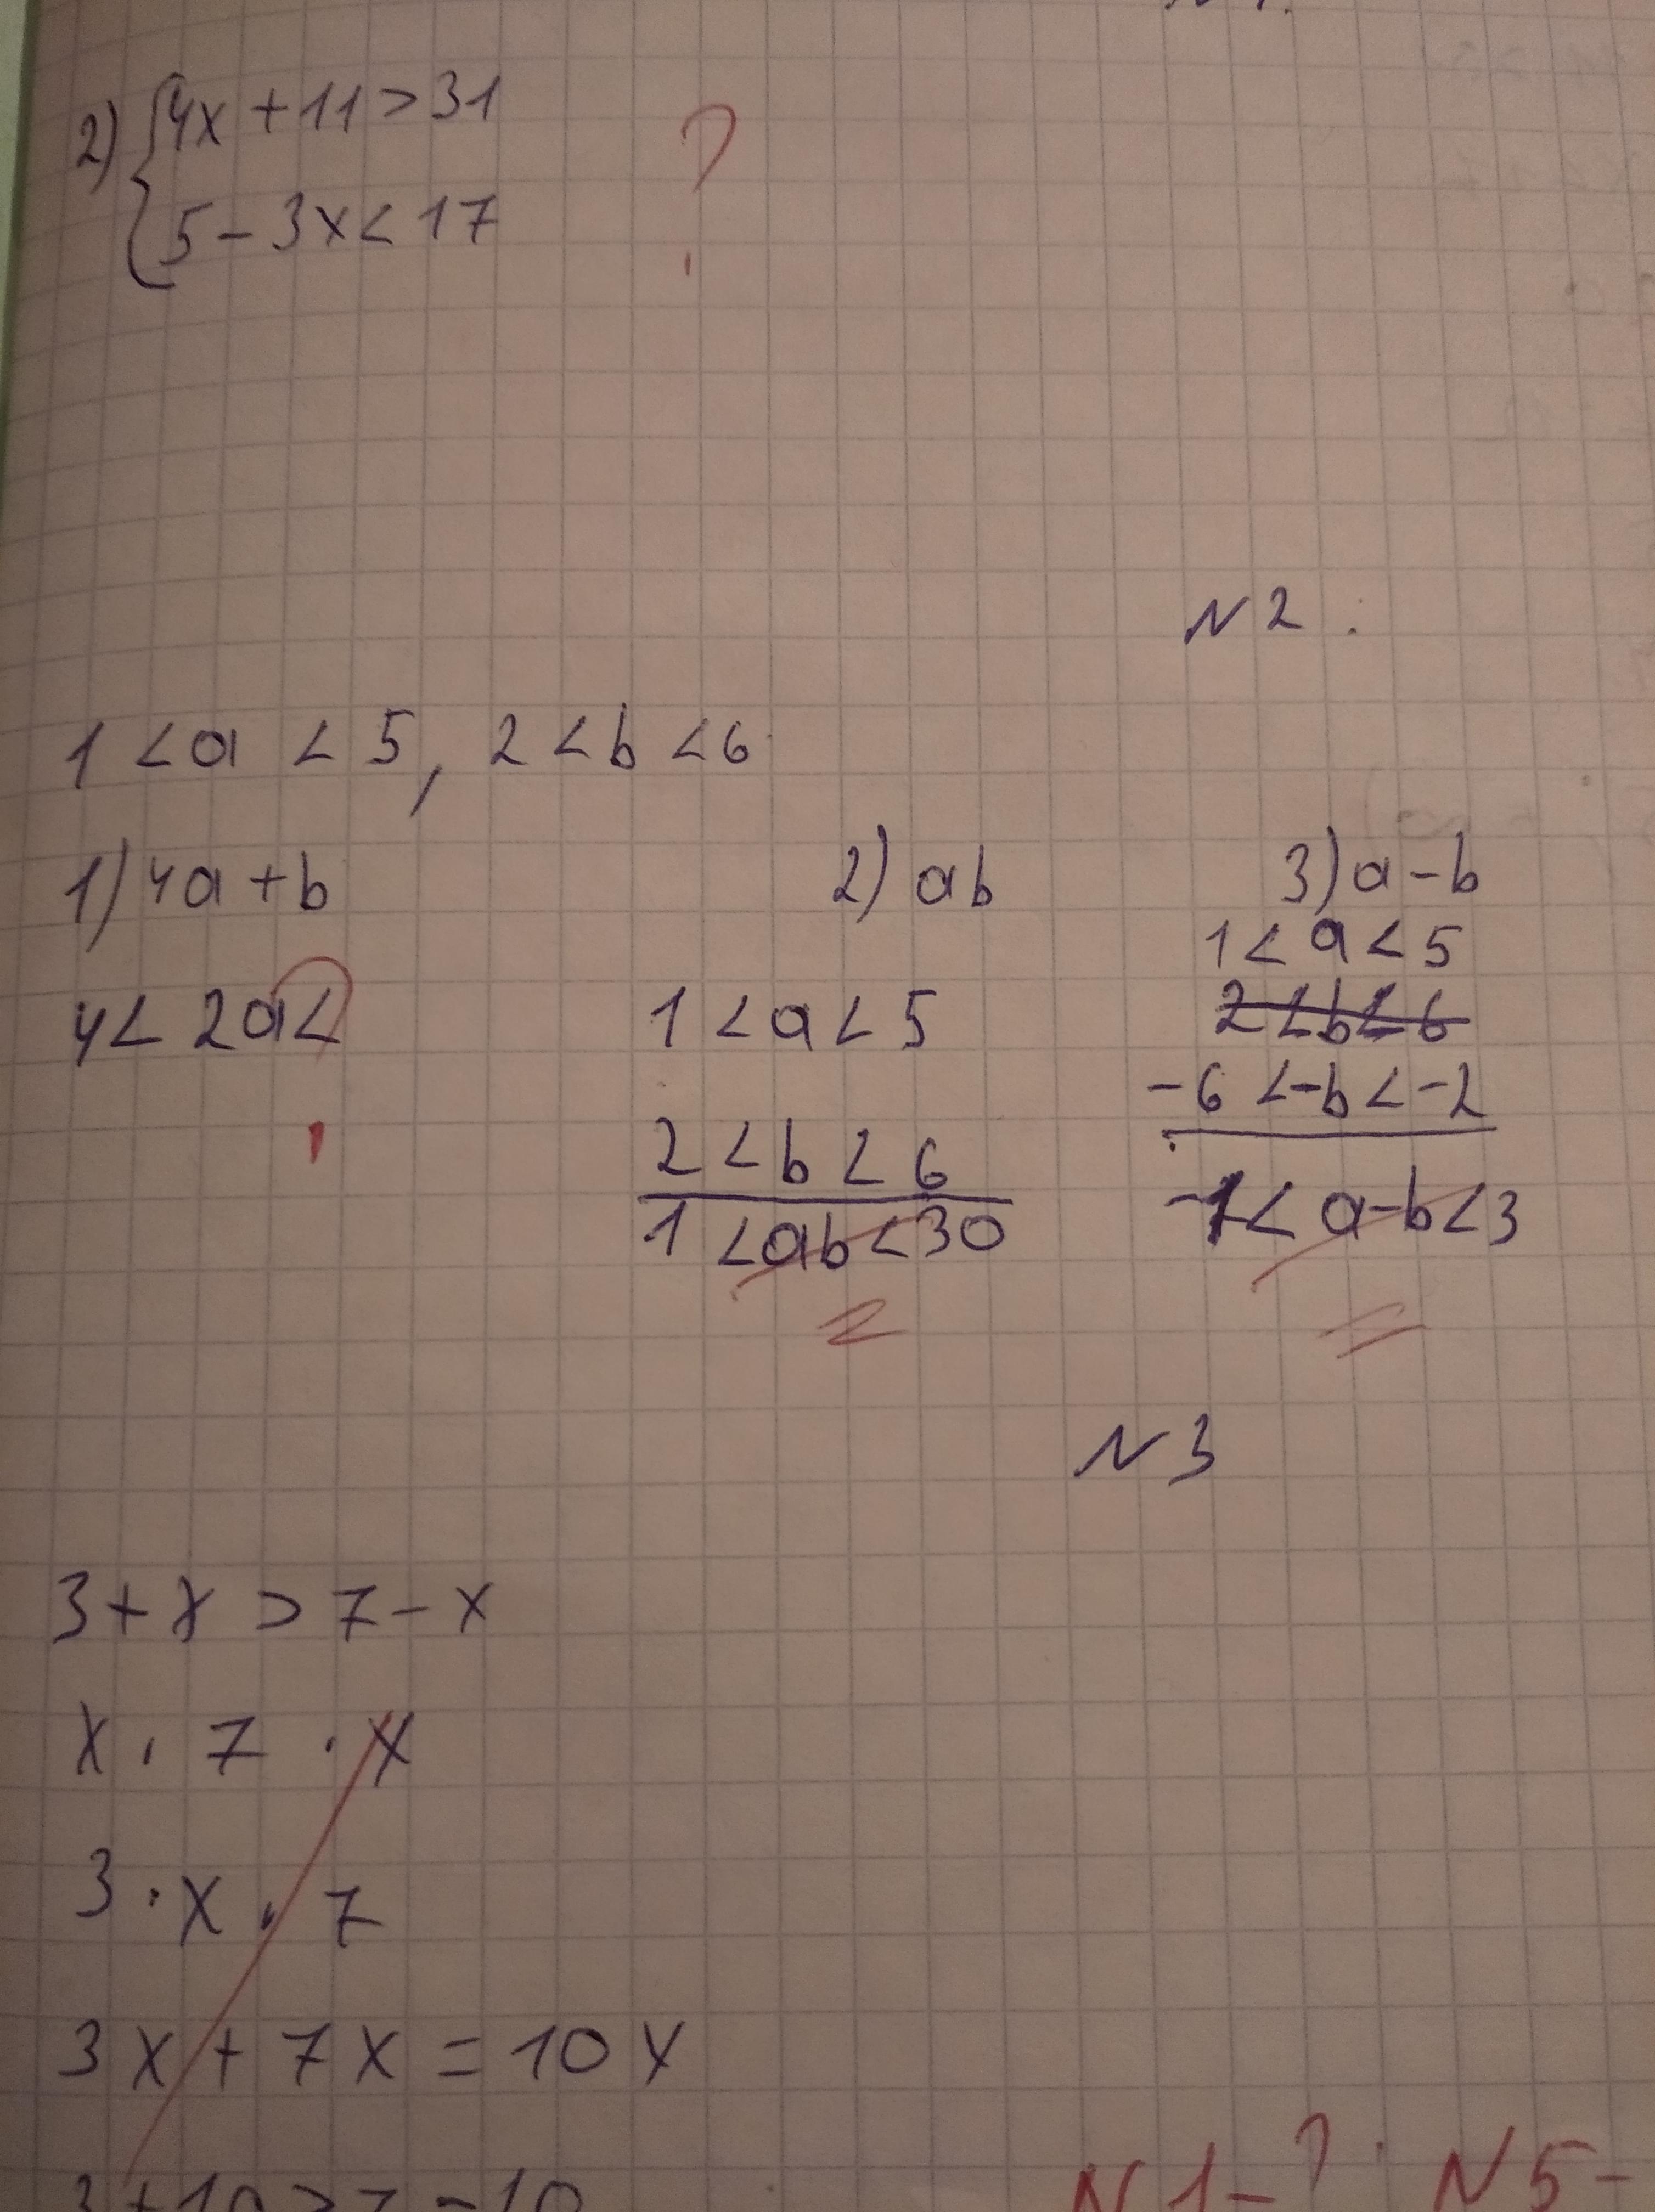 2) { 4x + 11 > 31
5 - 3x < 17
?
N 2.
1 < a < 5, 2 < b < 6
1) 4a + b
4 < 2a <
?
2) ab
1 < a < 5
2 < b < 6
1 < ab < 30
3) a - b
1 < a < 5
2 < b < 6
-6 < -b < -2
-1 < a - b < 3
N 3
3 + x > 7 - x
x · 7 · x
3 · x · 7
3x + 7x = 10x
3 + 10 > 7 - 10
N 1 - ? N 5 -